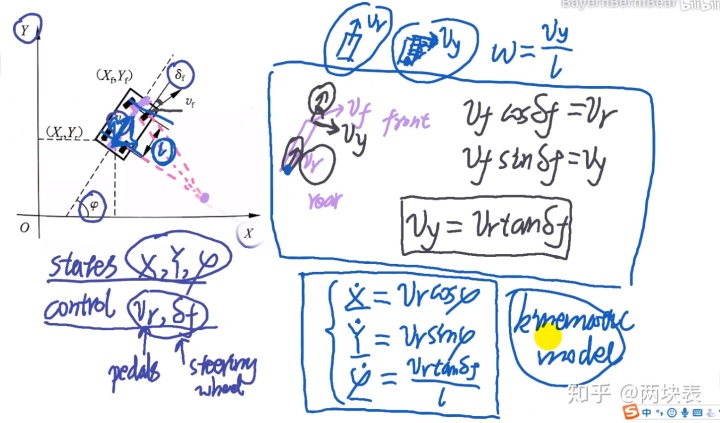 BayernBerniBear bilibili
Y
(X_f,Y_f) δ_f
v_f
(X_r,Y_r)
l
φ
O X
v_r v_y ω = v_y / l
v_f front
v_y
v_r
rear
v_f cos δ_f = v_r
v_f sin δ_f = v_y
v_y = v_r tan δ_f
states X, Y, φ
control v_r, δ_f
pedals steering wheel
Ẋ = v_r cos φ
Ẏ = v_r sin φ
φ̇ = v_r tan δ_f / l
kinematic
model
知乎 @两块表
中